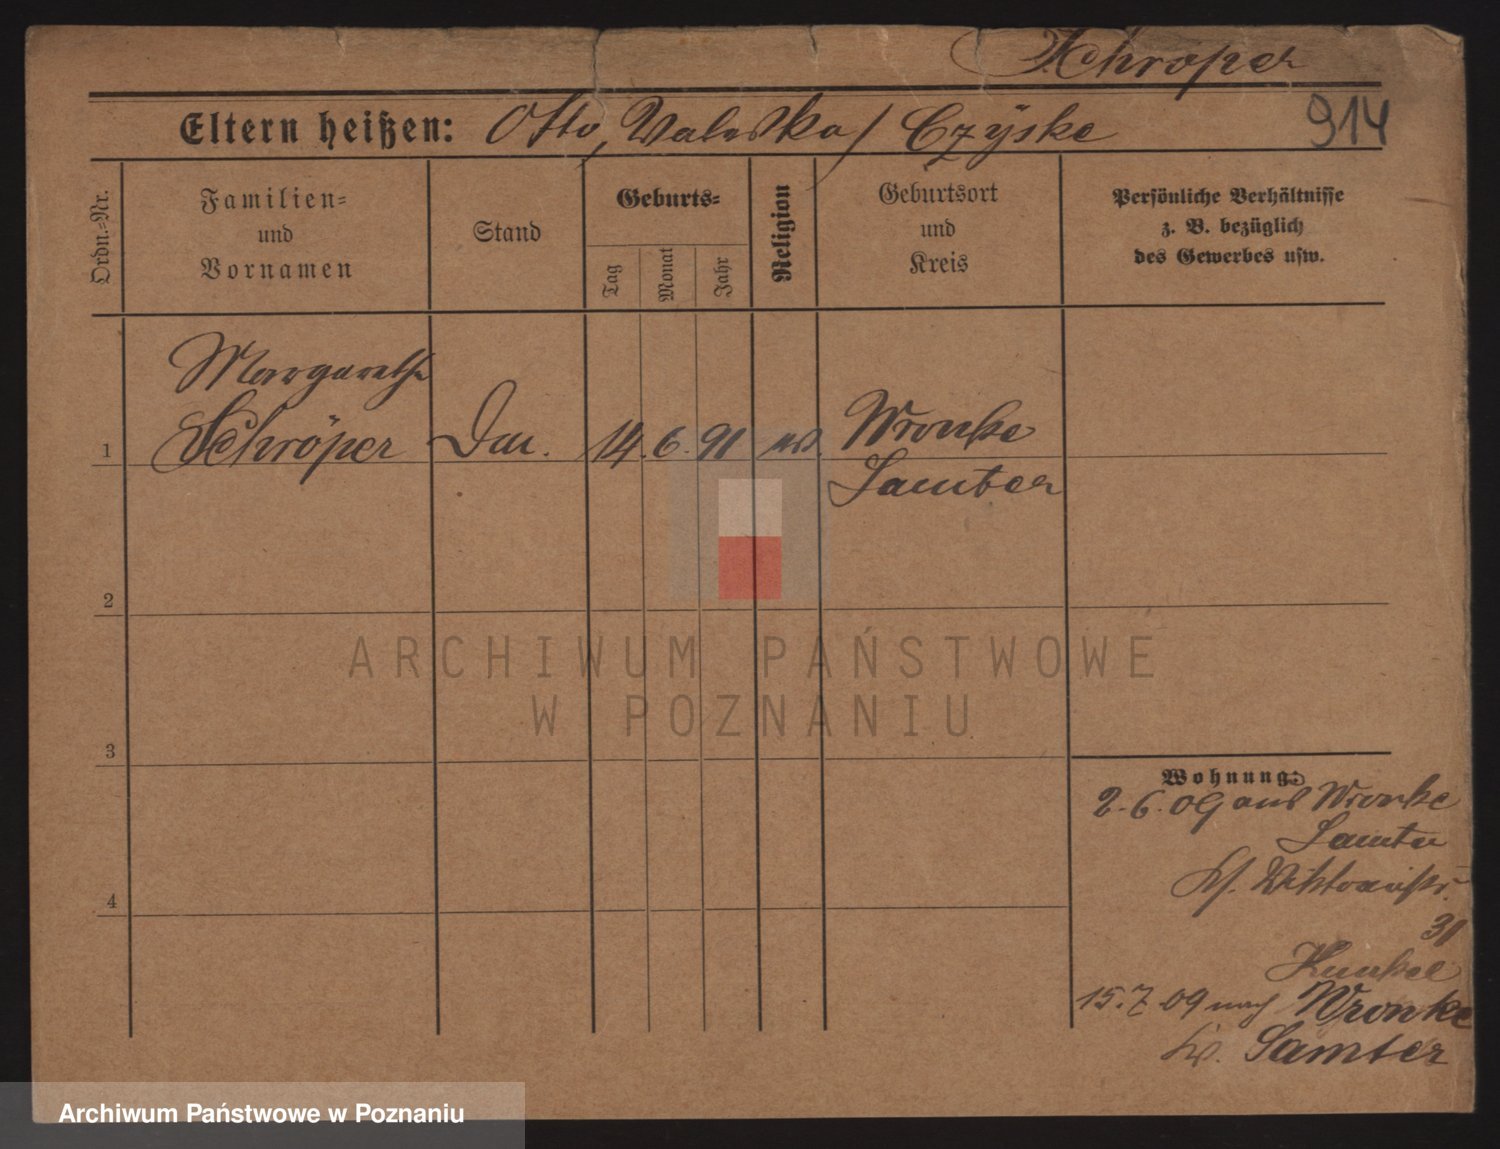 Schröper
914
Eltern heißen: Otto, Valeska / Czÿske
Ordn.-Nr.
Familien-
und
Vornamen
Stand
Geburts-
Tag
Monat
Jahr
Religion
Geburtsort
und
Kreis
Persönliche Verhältnisse
z. B. bezüglich
des Gewerbes usw.
Margarethe
1 Schröper 14. 6. 91 Wronke
Samter
2
3
4
ARCHIWUM PAŃSTWOWE
W POZNANIU
Wohnung:
2.6.09 aus Wronke
Samter
Viktoriastr.
31
Kunkel
15.7.09 nach Wronke
Kr. Samter
Archiwum Państwowe w Poznaniu